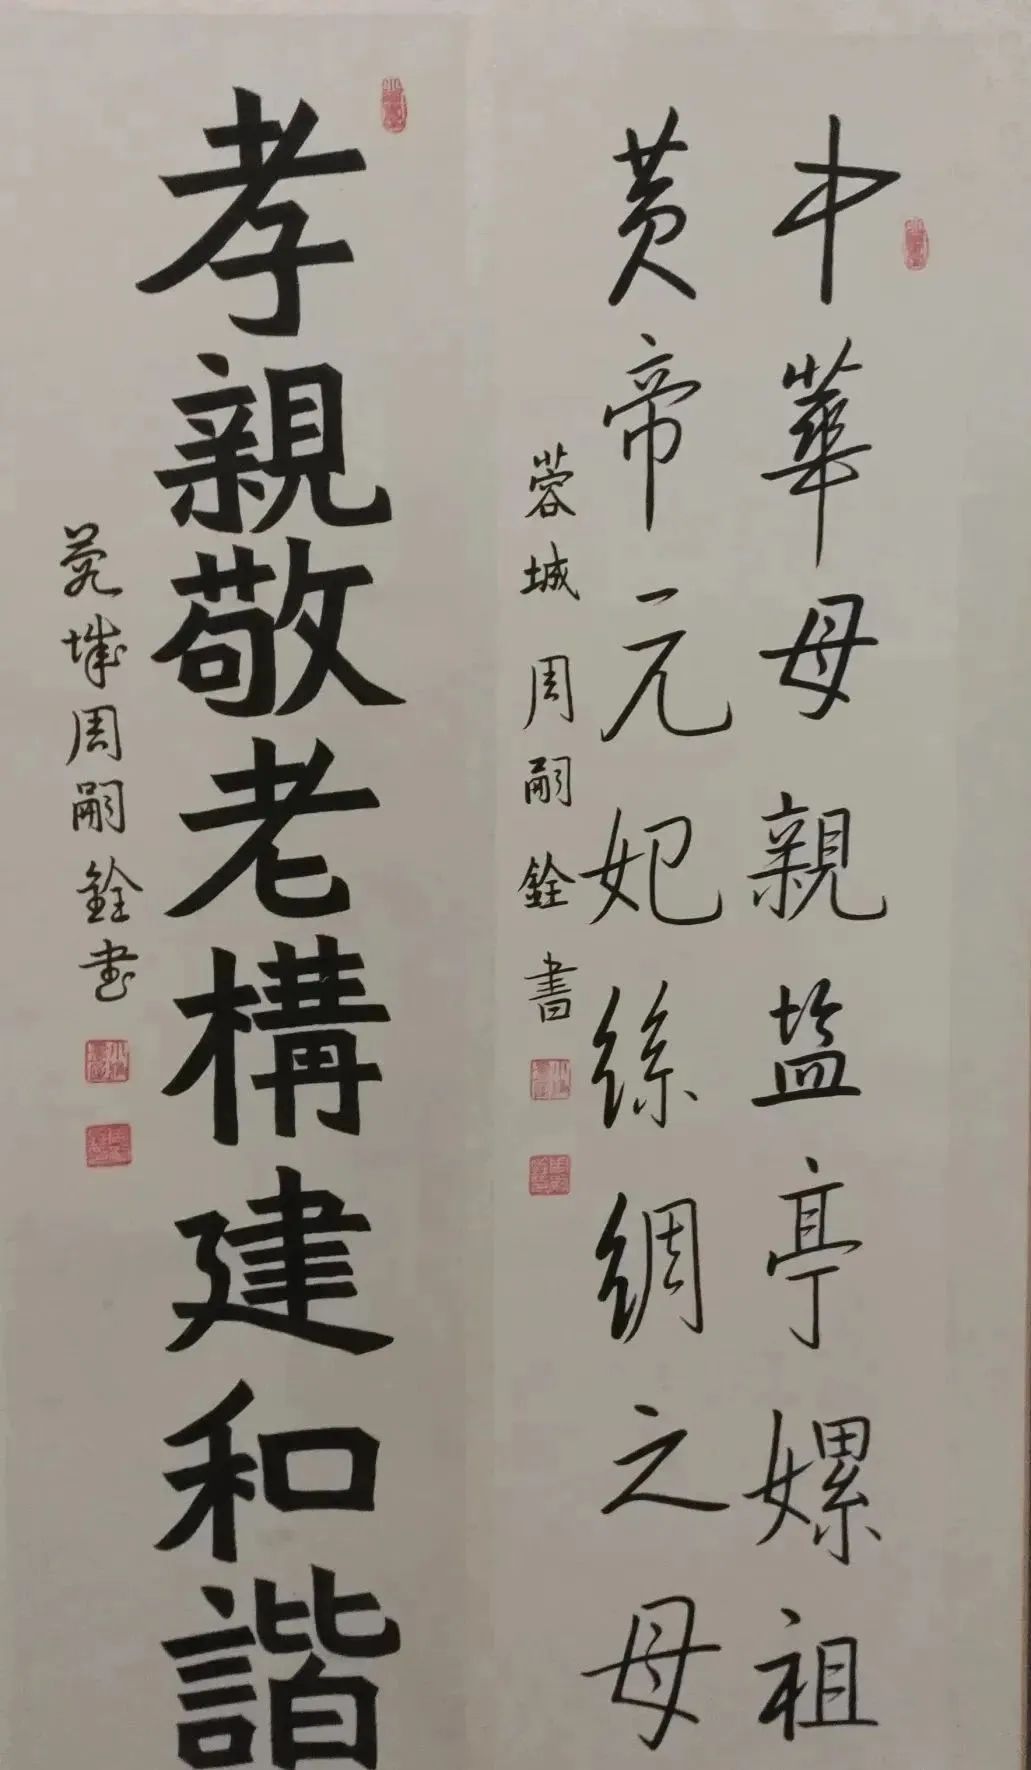 中華母親盐亭嫘祖
黄帝元妃絲綢之母
蓉城周嗣銓書
孝親敬老構建和諧
蓉城周嗣銓书